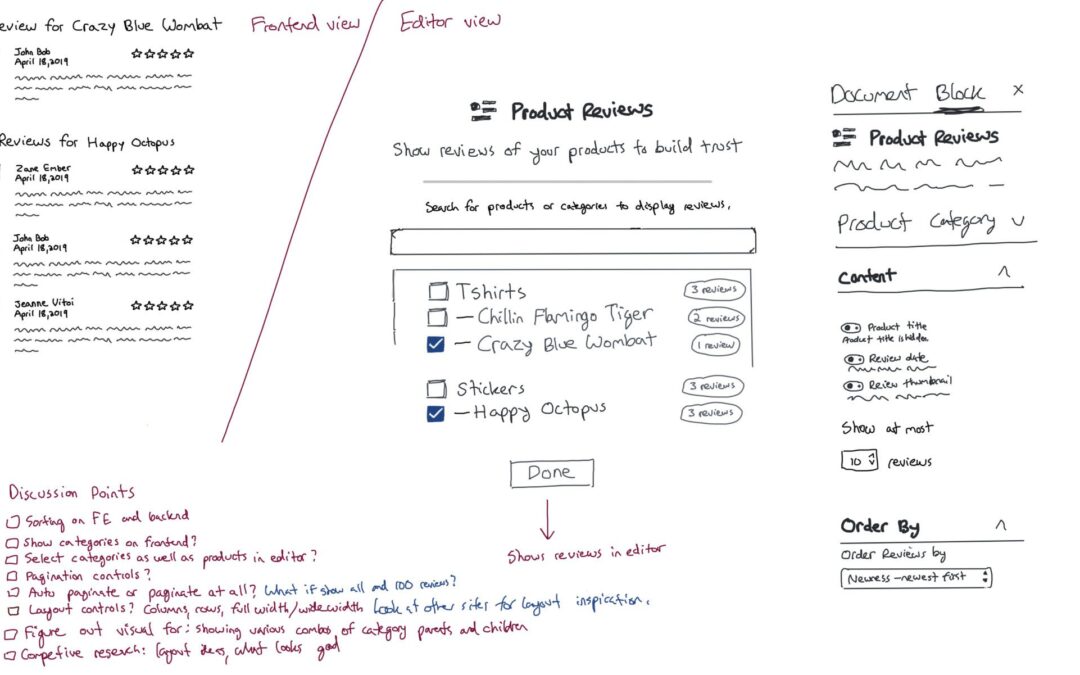 eview for Crazy Blue Wombat
Frontend view
Editor view
John Bob
April 18, 2019
Reviews for Happy Octopus
Zane Ember
April 18, 2019
John Bob
April 18, 2019
Jeanne Vitoi
April 18, 2019
Product Reviews
Show reviews of your products to build trust
Search for products or categories to display reviews.
Tshirts 3 reviews
— Chillin Flamingo Tiger 2 reviews
— Crazy Blue Wombat 1 review
Stickers 3 reviews
— Happy Octopus 3 reviews
Done
Shows reviews in editor
Document Block X
Product Reviews
Product Category
Content
Product title
Product title is hidden
Review date
Review thumbnail
Show at most
10 reviews
Order By
Order Reviews by
Newess - newest first
Discussion Points
Sorting on FE and backend
Show categories on frontend?
Select categories as well as products in editor?
Pagination controls?
Auto paginate or paginate at all? What if show all and 100 reviews?
Layout controls? Columns, rows, full width/wide width Look at other sites for layout inspiration.
Figure out visual for: showing various combos of category parents and children
Competive research: layout ideas, what looks good